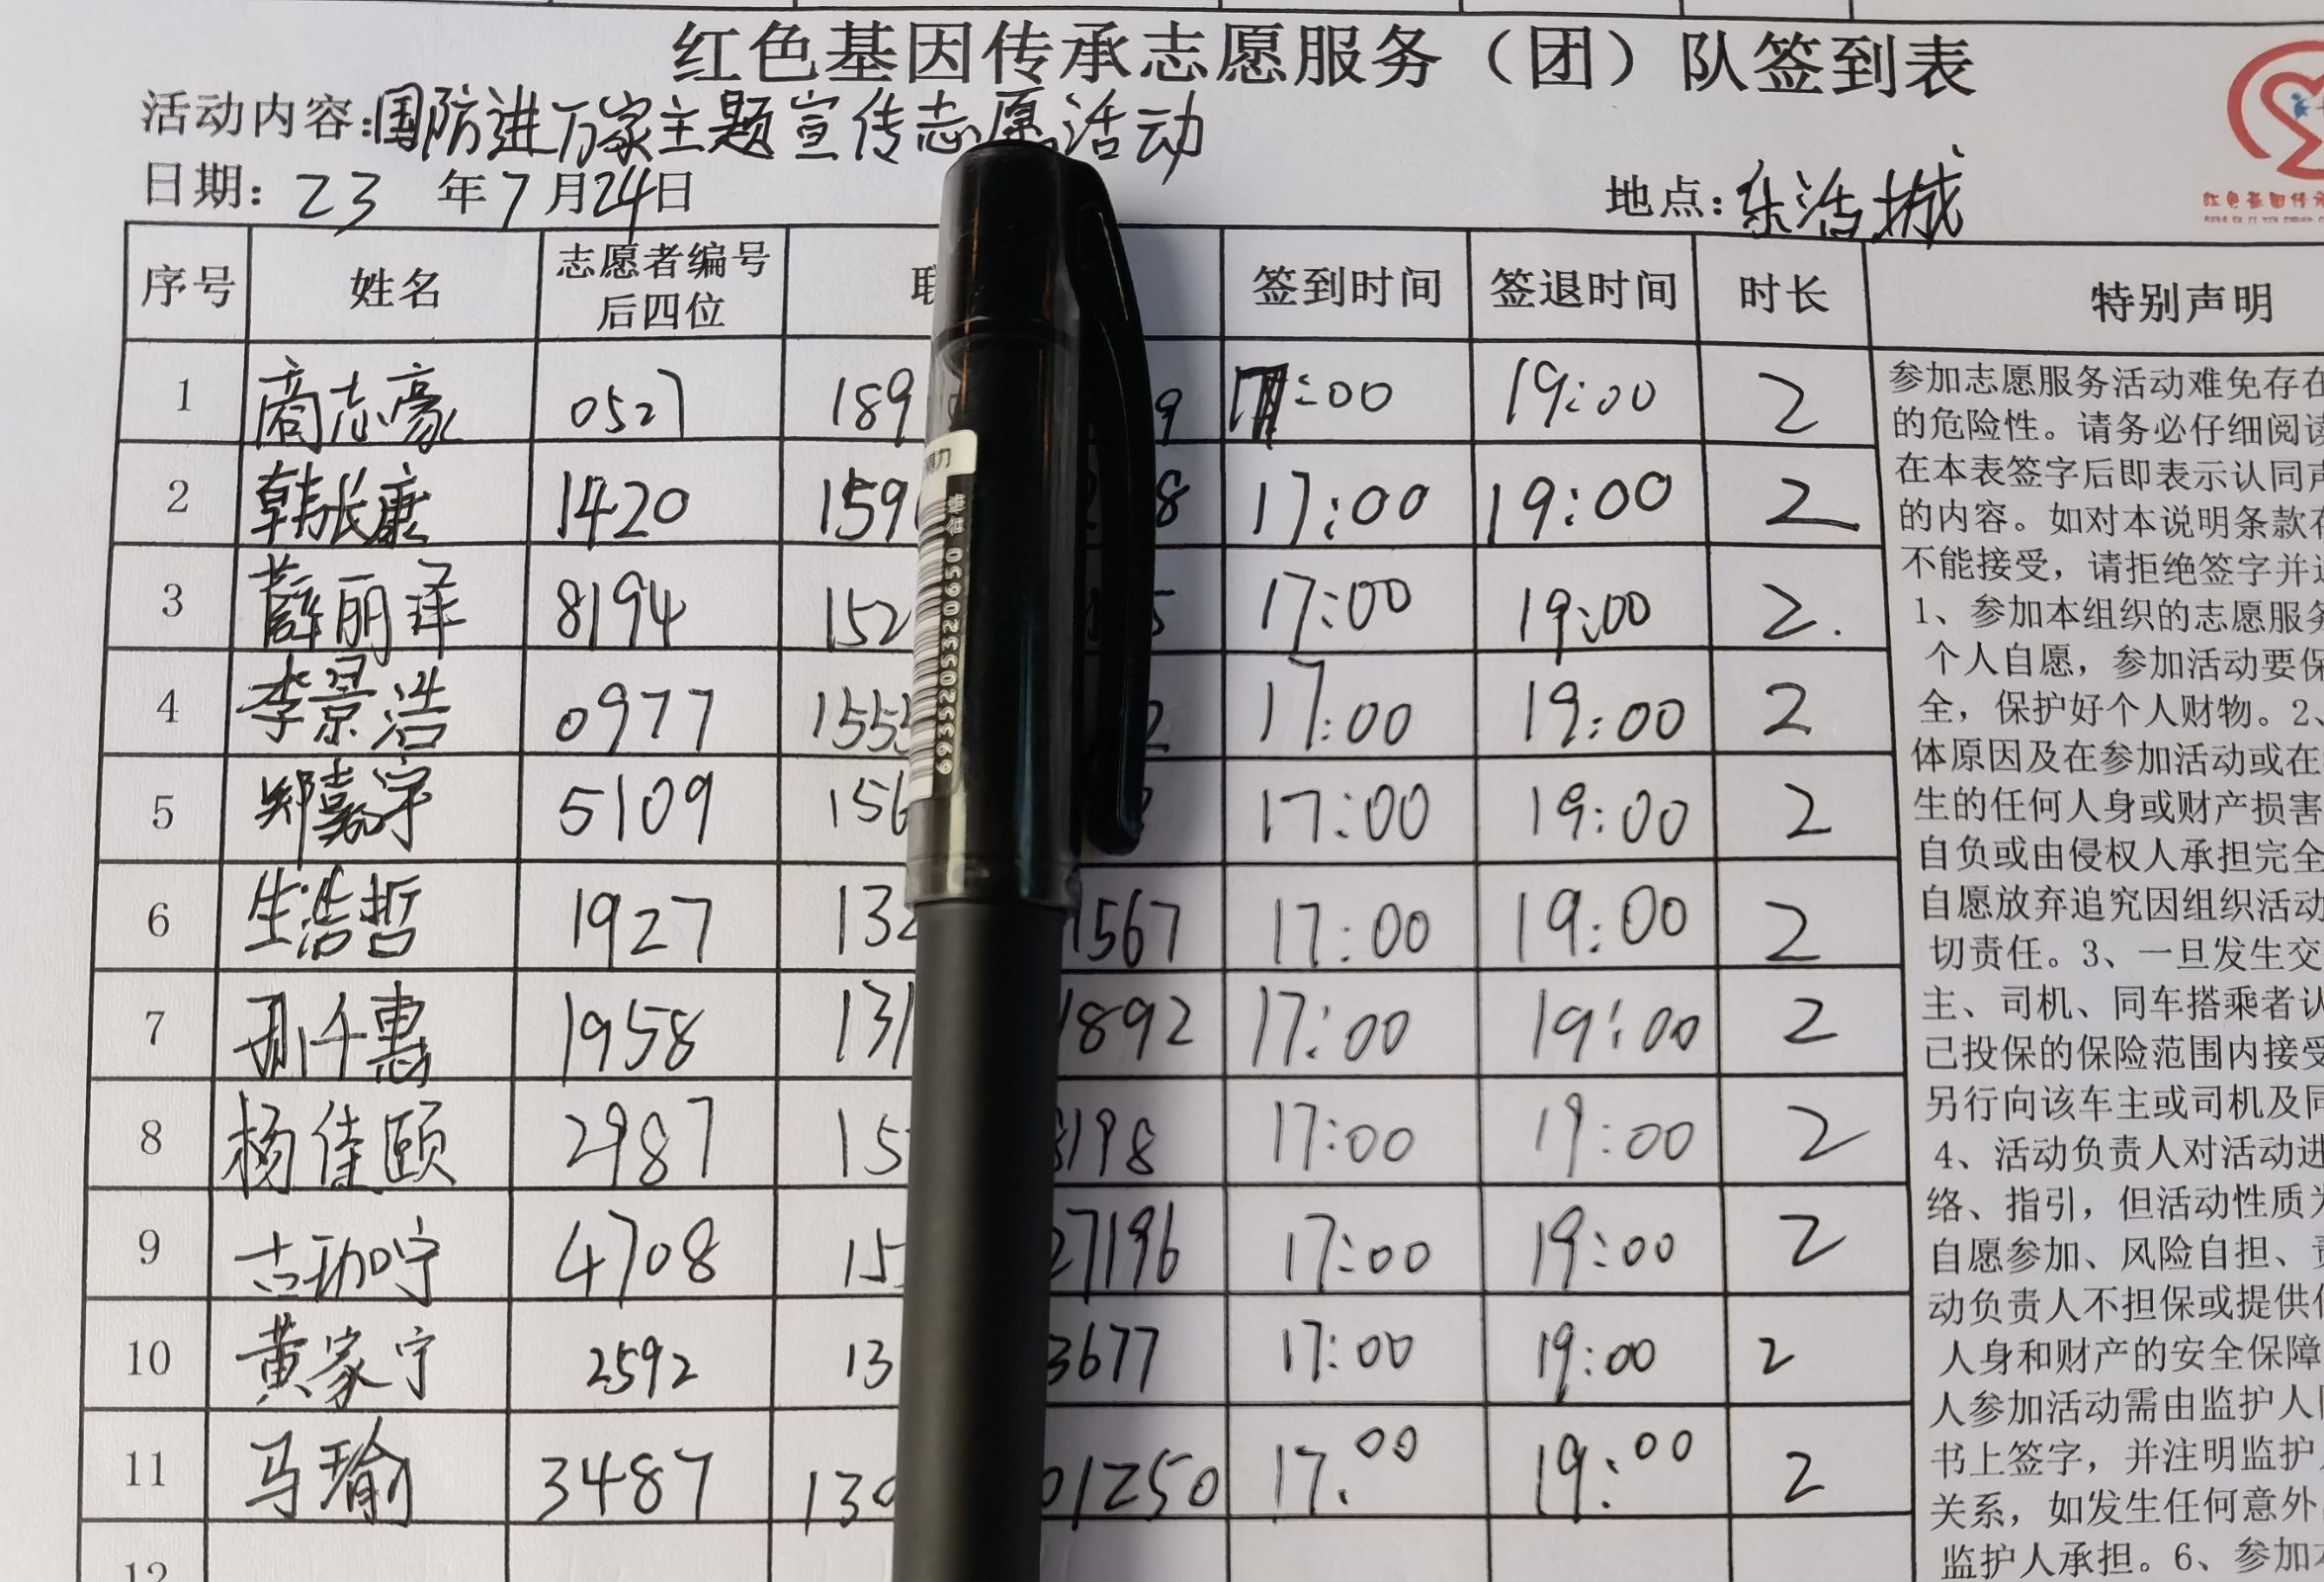 红色基因传承志愿服务（团）队签到表
活动内容:国防进万家主题宣传志愿活动
日期: 23 年7月24日 地点:东浩城
序号 姓名 志愿者编号后四位 联 签到时间 签退时间 时长 特别声明
1 商志豪 0527 189 9 17:00 19:00 2
2 韩张康 1420 159 8 17:00 19:00 2
3 薛丽泽 8194 152 5 17:00 19:00 2.
4 李景浩 0977 1555 2 17:00 19:00 2
5 郑嘉宇 5109 156 17:00 19:00 2
6 生浩哲 1927 132 1567 17:00 19:00 2
7 孙千惠 1958 131 1892 17:00 19:00 2
8 杨佳颐 2987 15 8198 17:00 19:00 2
9 古珈宁 4708 15 27196 17:00 19:00 2
10 黄家宁 2592 13 3677 17:00 19:00 2
11 马瑜 3487 130 01250 17:00 19:00 2
12
参加志愿服务活动难免存在
的危险性。请务必仔细阅读
在本表签字后即表示认同声
的内容。如对本说明条款存
不能接受，请拒绝签字并退
1、参加本组织的志愿服务
个人自愿，参加活动要保
全，保护好个人财物。2、
体原因及在参加活动或在
生的任何人身或财产损害
自负或由侵权人承担完全
自愿放弃追究因组织活动
切责任。3、一旦发生交
主、司机、同车搭乘者认
己投保的保险范围内接受
另行向该车主或司机及同
4、活动负责人对活动进
络、指引，但活动性质为
自愿参加、风险自担、责
动负责人不担保或提供任
人身和财产的安全保障
人参加活动需由监护人
书上签字，并注明监护
关系，如发生任何意外
监护人承担。6、参加本
6935205320650 合格